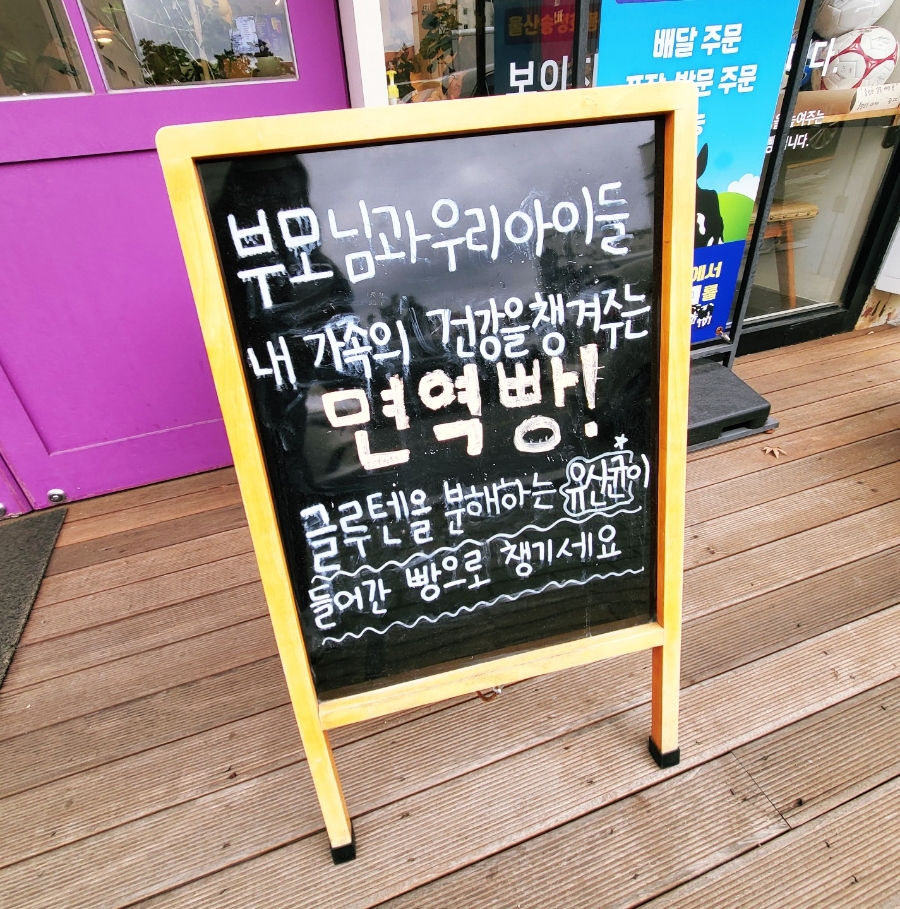 울산송정호
보이
배달 주문
포장 방문 주문
부모님과 우리아이들
내 가족의 건강을 챙겨주는
면역빵!
글루텐을 분해하는 유산균이
들어간 빵으로 챙기세요